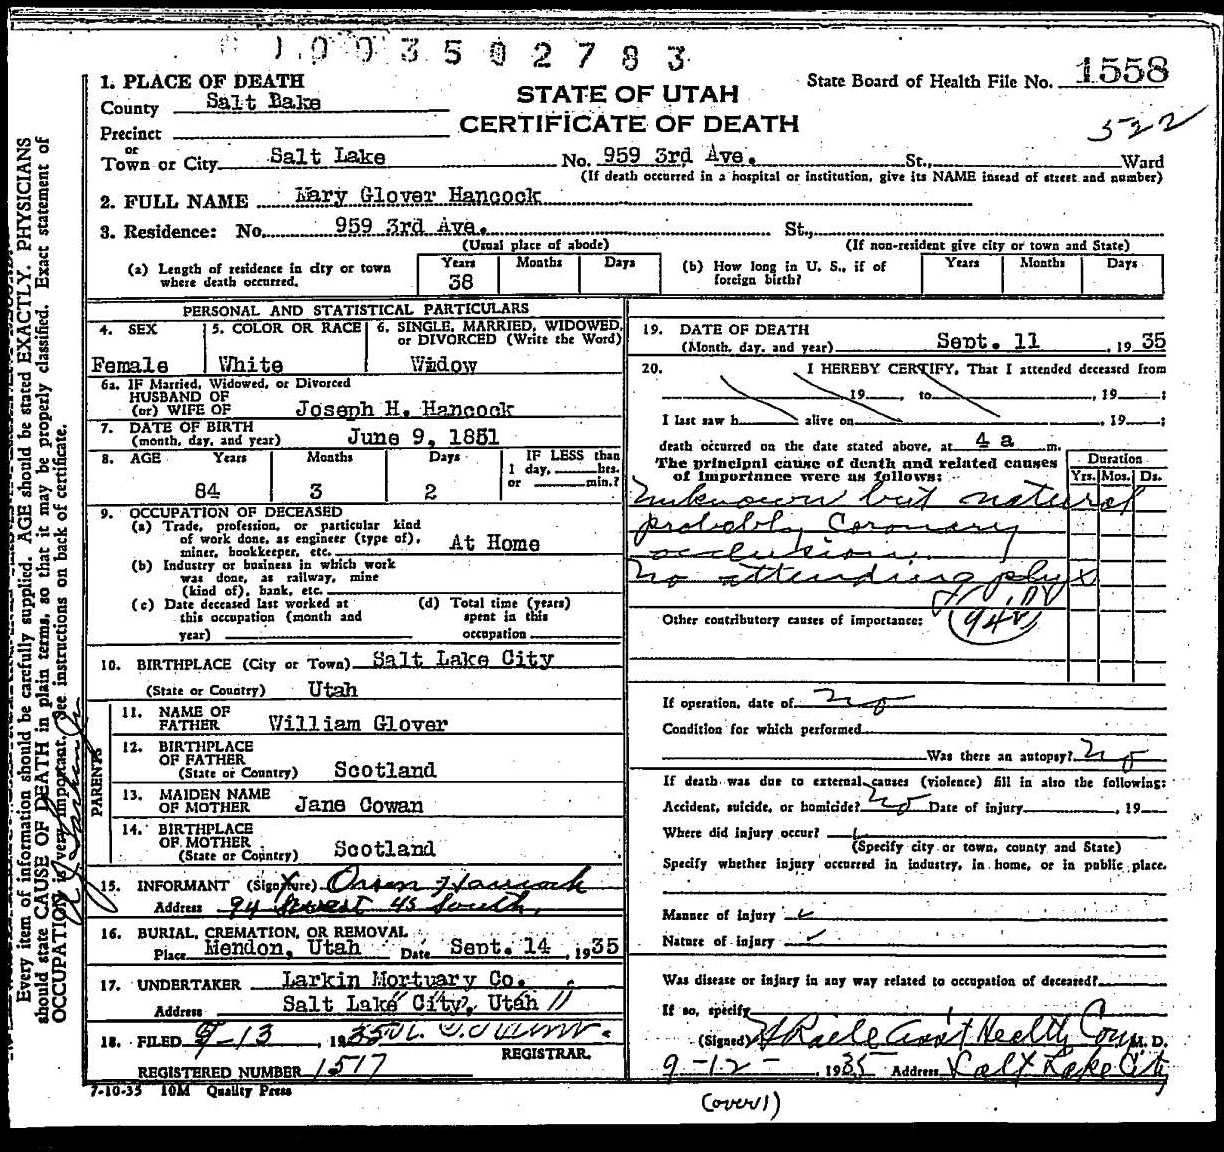 1003502783
1. PLACE OF DEATH
State Board of Health File No. 1558
County Salt Bake
STATE OF UTAH
CERTIFICATE OF DEATH
522
Precinct
or
Town or City Salt Lake No. 959 3rd Ave. St., Ward
(If death occurred in a hospital or institution, give its NAME insead of street and number)
2. FULL NAME Mary Glover Hancock
3. Residence: No. 959 3rd Ave. St.,
(Usual place of abode) (If non-resident give city or town and State)
(a) Length of residence in city or town where death occurred. Years 38 Months Days
(b) How long in U. S., if of foreign birth? Years Months Days
PERSONAL AND STATISTICAL PARTICULARS
4. SEX
Female
5. COLOR OR RACE
White
6. SINGLE, MARRIED, WIDOWED,
or DIVORCED (Write the Word)
Widow
6a. IF Married, Widowed, or Divorced
HUSBAND OF
(or) WIFE OF Joseph H. Hancock
7. DATE OF BIRTH
(month, day, and year) June 9, 1851
8. AGE Years Months Days IF LESS than
1 day, hrs.
or min.?
84 3 2
9. OCCUPATION OF DECEASED
(a) Trade, profession, or particular kind
of work done, as engineer (type of),
miner, bookkeeper, etc. At Home
(b) Industry or business in which work
was done, as railway, mine
(kind of), bank, etc.
(c) Date deceased last worked at
this occupation (month and
year)
(d) Total time (years)
spent in this
occupation
10. BIRTHPLACE (City or Town) Salt Lake City
(State or Country) Utah
PARENTS
11. NAME OF
FATHER William Glover
12. BIRTHPLACE
OF FATHER
(State or Country) Scotland
13. MAIDEN NAME
OF MOTHER Jane Cowan
14. BIRTHPLACE
OF MOTHER
(State or Country) Scotland
15. INFORMANT (Signature) Orson Hancock
Address 94 West 4S South.
16. BURIAL, CREMATION, OR REMOVAL
Place Mendon, Utah Date Sept. 14, 1935
17. UNDERTAKER Larkin Mortuary Co.
Address Salt Lake City, Utah
18. FILED 9-13 1935
REGISTRAR.
REGISTERED NUMBER 1517
7-10-35 10M Quality Press
19. DATE OF DEATH
(Month, day, and year) Sept. 11, 1935
20. I HEREBY CERTIFY, That I attended deceased from
, 19 , to , 19 ;
I last saw h alive on , 19 ;
death occurred on the date stated above, at 4 a m.
The principal cause of death and related causes
of importance were as follows:
Duration
Yrs. Mos. Ds.
Unknown but natural
probably Coronary
occlusion.
No attending phy
94
Other contributory causes of importance:
If operation, date of no
Condition for which performed
Was there an autopsy? no
If death was due to external causes (violence) fill in also the following:
Accident, suicide, or homicide? no Date of injury , 19
Where did injury occur?
(Specify city or town, county and State)
Specify whether injury occurred in industry, in home, or in public place.
Manner of injury
Nature of injury
Was disease or injury in any way related to occupation of deceased?
If so, specify
(Signed) Asst Health Com M. D.
9-12-, 1935 Address Salt Lake City
(over)
Every item of information should be carefully supplied. AGE should be stated EXACTLY. PHYSICIANS
should state CAUSE OF DEATH in plain terms, so that it may be properly classified. Exact statement of
OCCUPATION is very important. See instructions on back of certificate.